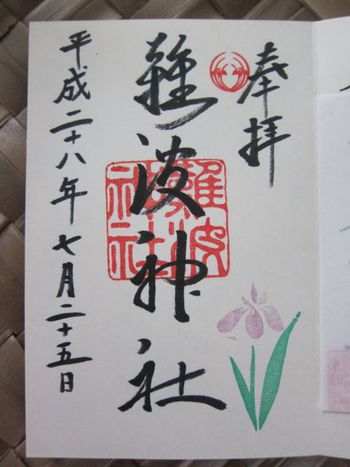 奉拝
難波神社
難波神社
平成二十八年七月二十五日